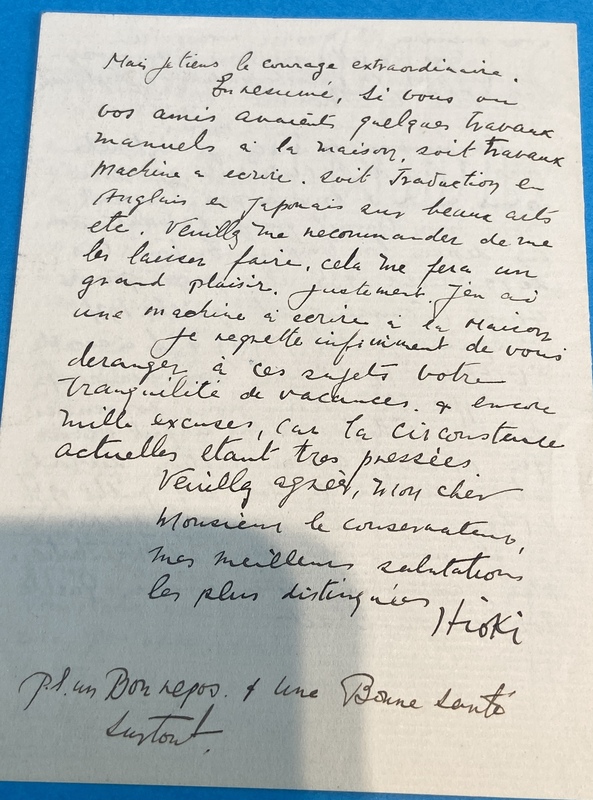 Mais je tiens le courage extraordinaire.
En resumé, si vous ou
vos amis avaients quelques travaux
manuels à la maison, soit travaux
machine a ecrire. soit Traduction en
Anglais en japonais sur beaux arts
etc. Veuillez me recommander de me
les laisser faire. cela me fera un
grand plaisir. justement. j'en ai
une machine à ecrire à la Maison
Je regrette infiniment de vous
deranger à ces sujets votre
tranquilité de vacances. & encore
mille excuses, car la circonstance
actuelles etant tres pressées
Veuillez agréer, mon cher
Monsieur le conservateur,
mes meilleurs salutations
les plus distinguées
Hioki
p.s. un Bon repos. & une Bonne santé
surtout.